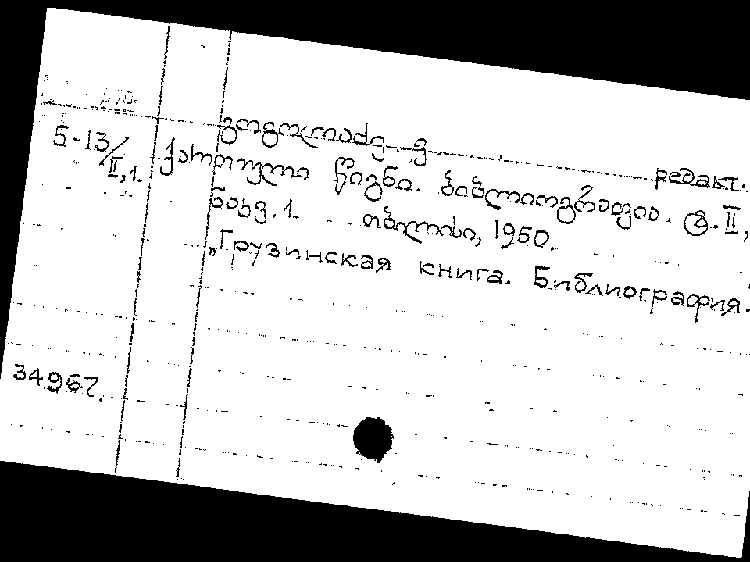 გოგოლაძე ე редакт.
Б-13/II,1. ქართული წიგნი. ბიბლიოგრაფია. ტ. II,
ნაკვ. 1. თბილისი, 1950.
„Грузинская книга. Библиография.
34967.